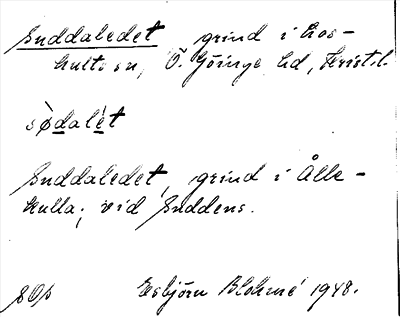 Suddaledet grind i Los-
hults sn, Ö. Göinge hd, Kristl.
sødalét
Suddaledet, grind i Ålle-
kulla; vid Suddens.
Esbjörn Blohmé 1948.